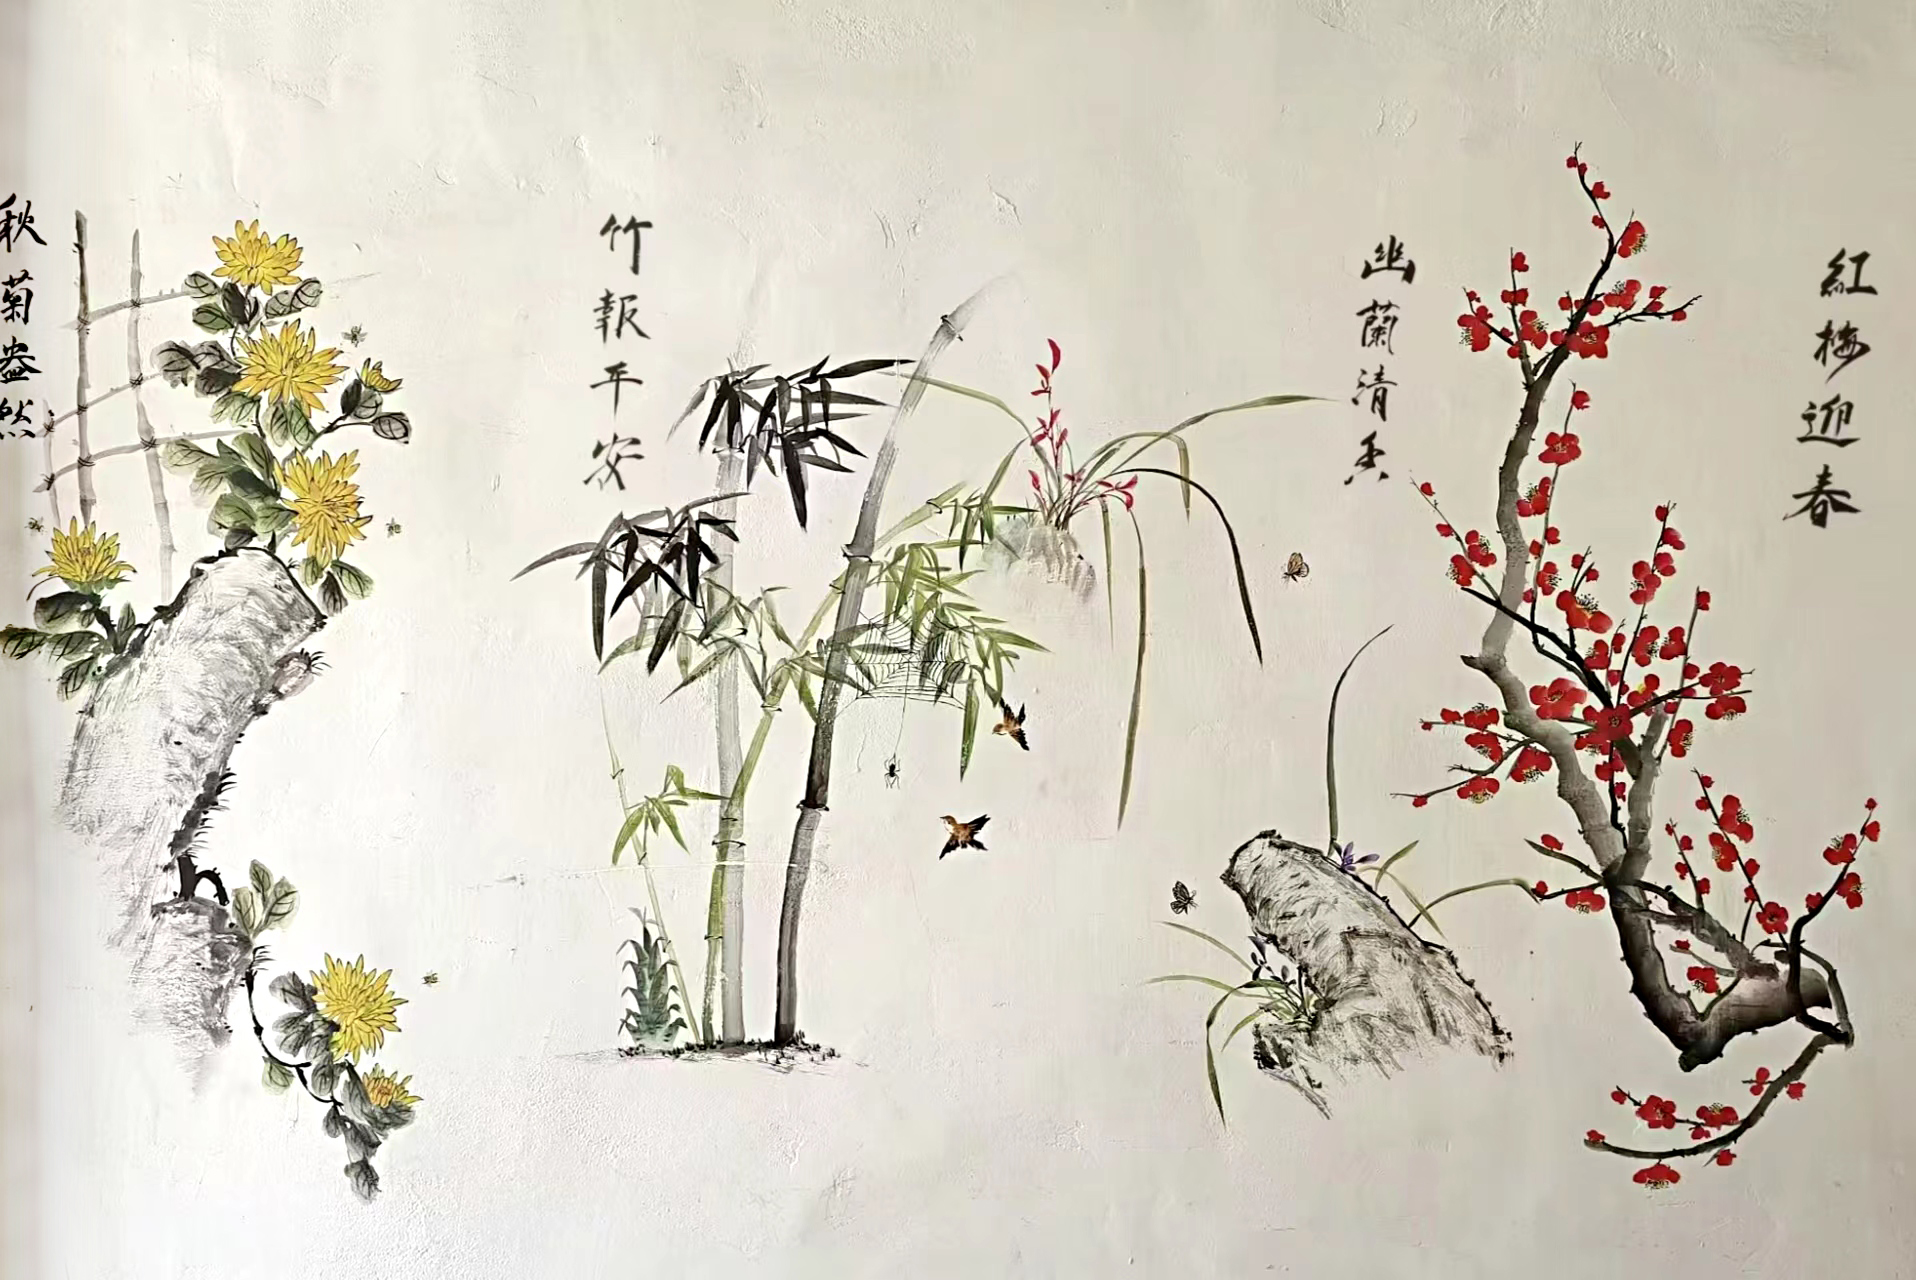 紅梅迎春
幽蘭清香
竹報平安
秋菊盎然